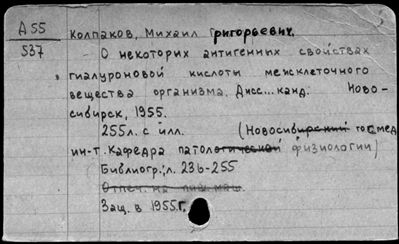 А 55
537
Колпаков, Михаил Григорьевич.
- О некоторих антигенных свойствах
гиалуроновой кислоты межклеточного
вещества организма. Дисс... канд. Ново-
сибирск, 1955.
255л. с илл. (Новосибирский гос. мед.
ин-т. Кафедра патологической физиологии)
Библиогр.: л. 236-255
Отпеч. на пиш. маш.
Защ. в 1955.г.